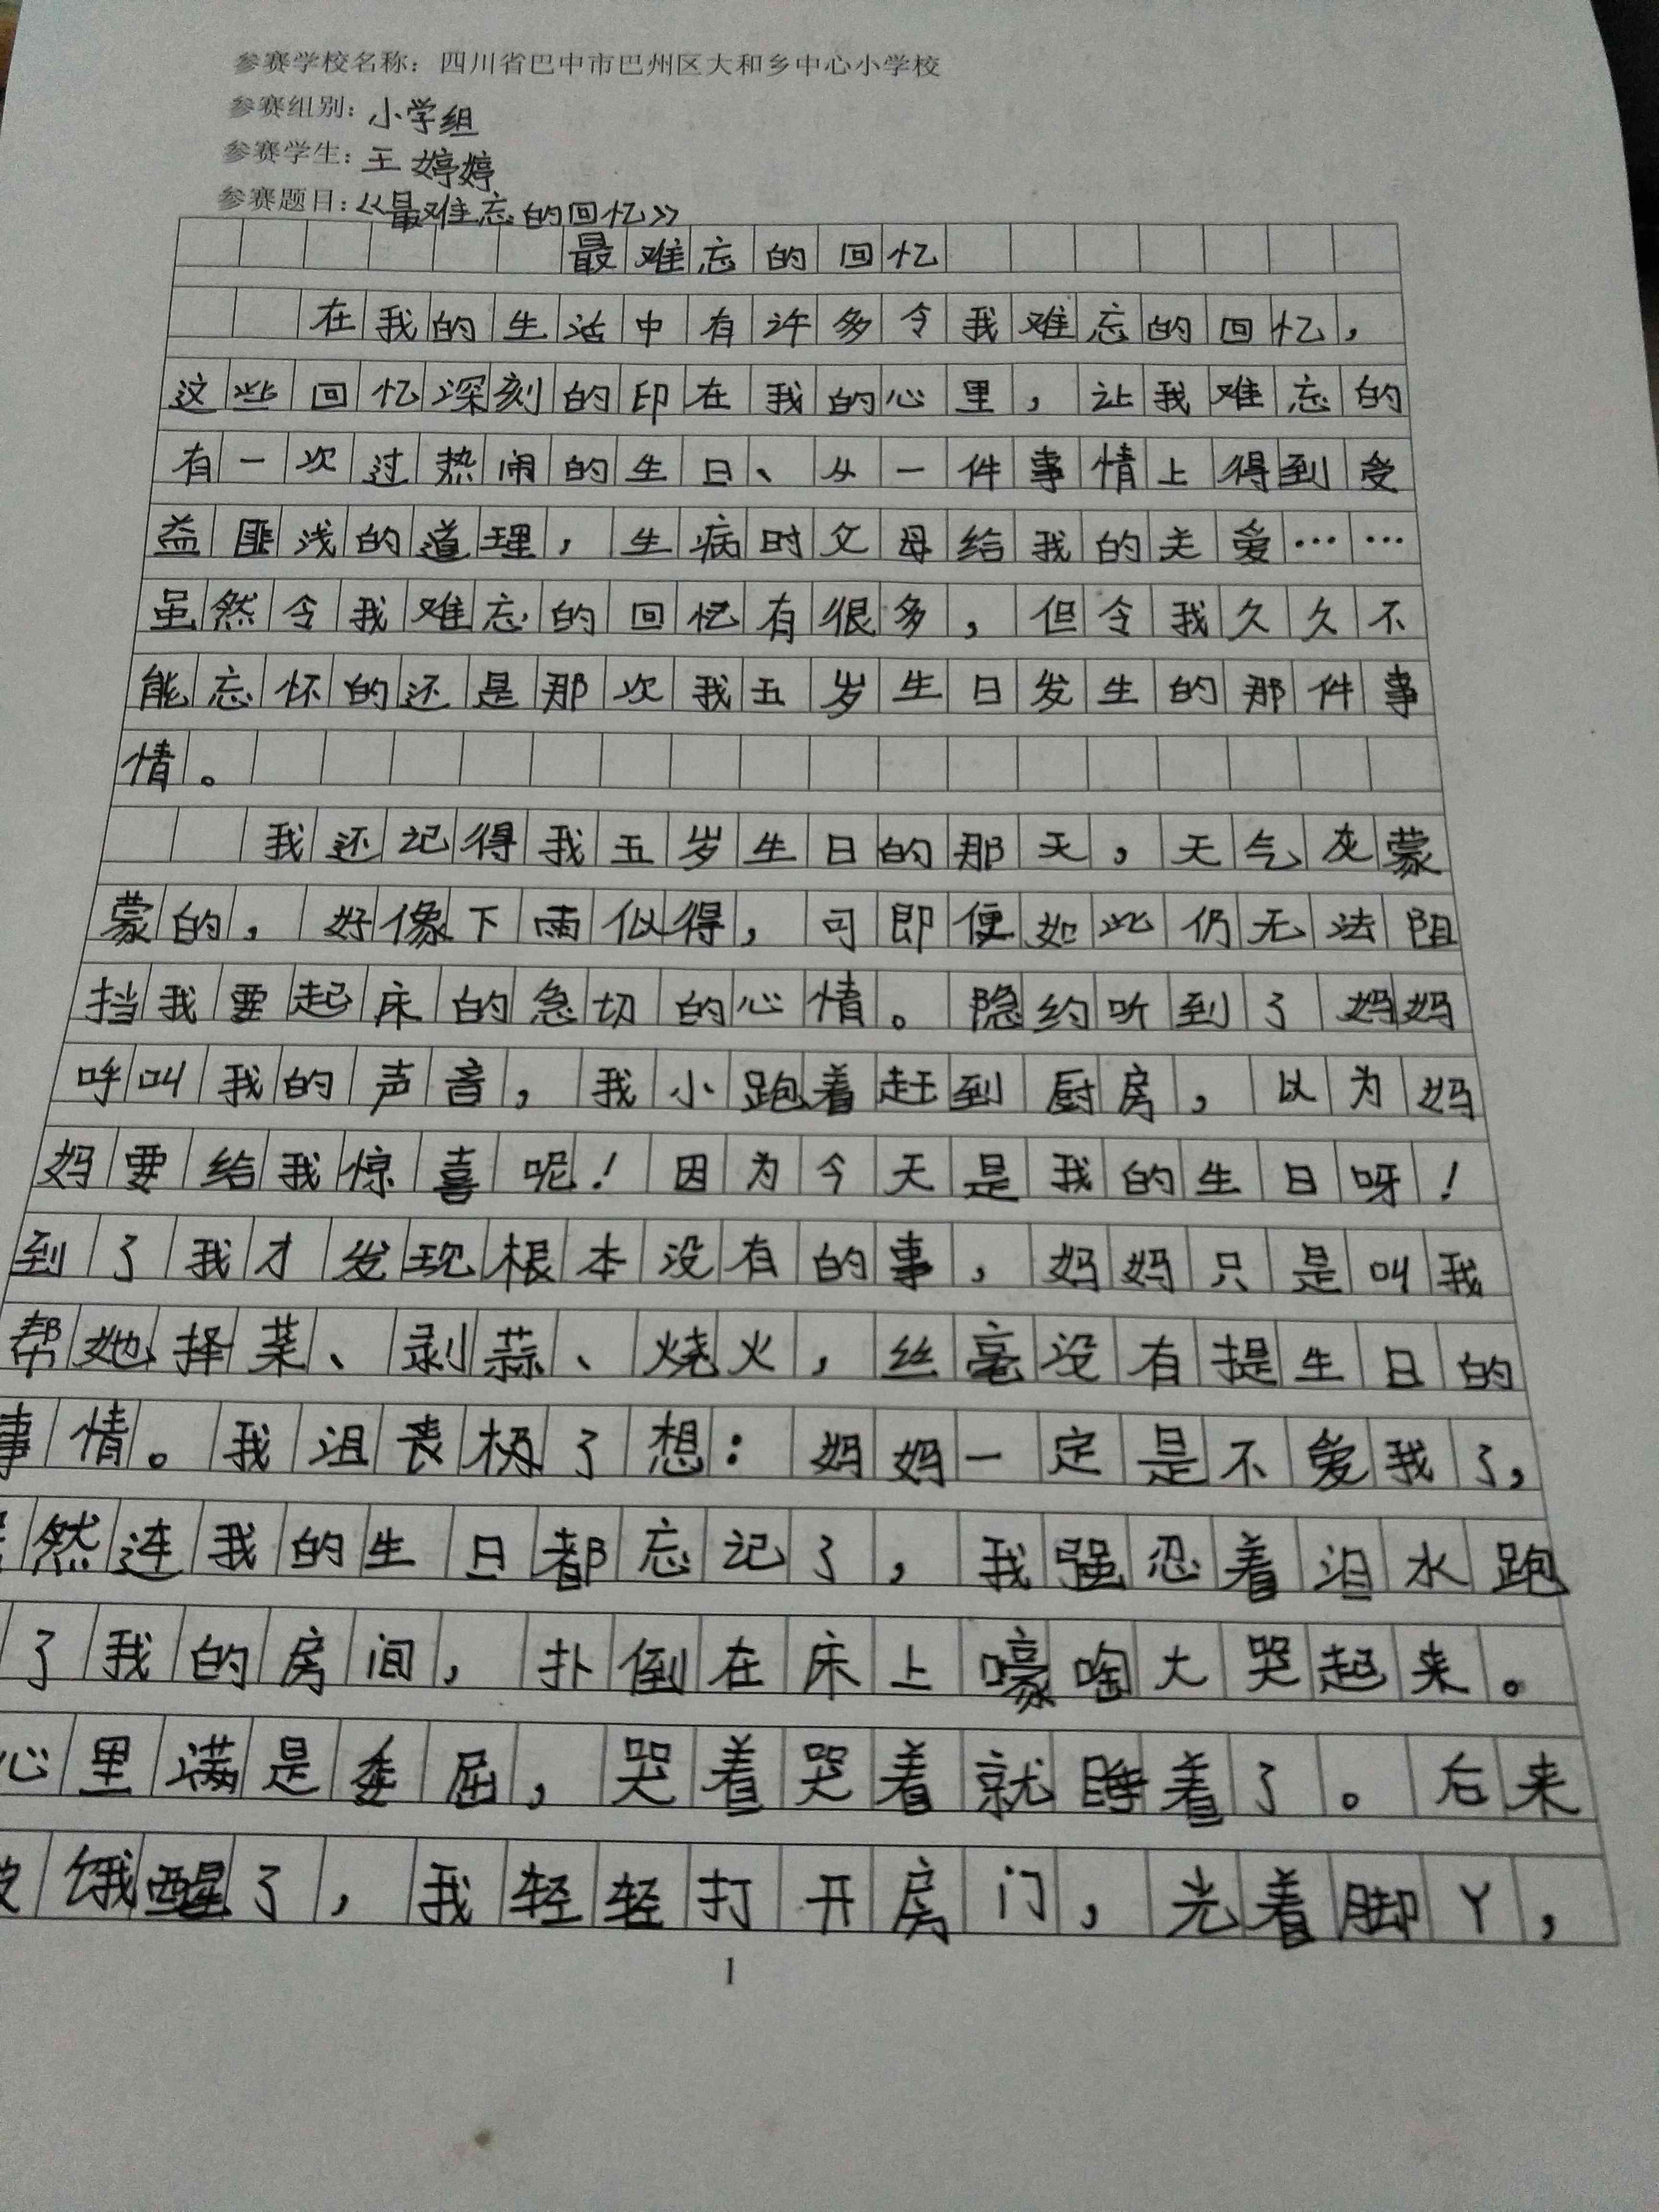 参赛学校名称：四川省巴中市巴州区大和乡中心小学校
参赛组别：小学组
参赛学生：王婷婷
参赛题目：《最难忘的回忆》
最难忘的回忆
在我的生活中有许多令我难忘的回忆，
这些回忆深刻的印在我的心里，让我难忘的
有一次过热闹的生日、从一件事情上得到受
益匪浅的道理，生病时父母给我的关爱……
虽然令我难忘的回忆有很多，但令我久久不
能忘怀的还是那次我五岁生日发生的那件事
情。
我还记得我五岁生日的那天，天气灰蒙
蒙的，好像下雨似得，可即便如此仍无法阻
挡我要起床的急切的心情。隐约听到了妈妈
呼叫我的声音，我小跑着赶到厨房，以为妈
妈要给我惊喜呢！因为今天是我的生日呀！
到了我才发现根本没有的事，妈妈只是叫我
帮她择菜、剥蒜、烧火，丝毫没有提生日的
事情。我沮丧极了想：妈妈一定是不爱我了，
然连我的生日都忘记了，我强忍着泪水跑
了我的房间，扑倒在床上嚎啕大哭起来。
心里满是委屈，哭着哭着就睡着了。后来
饿醒了，我轻轻打开房门，光着脚丫，
1